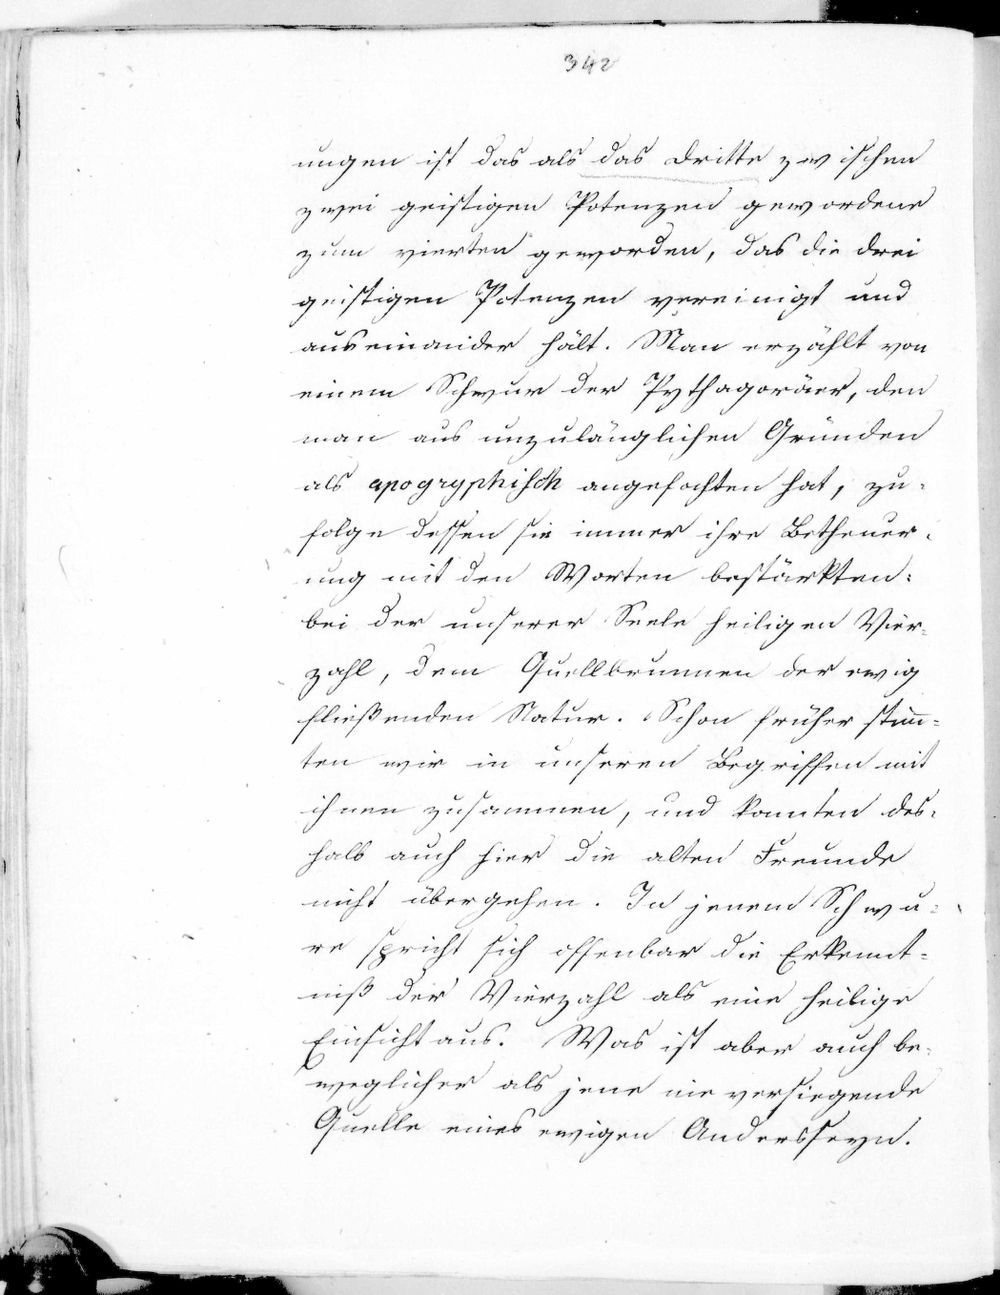 342
ungen ist das als das dritte zwischen
zwei geistigen Potenzen gewordene
zum vierten geworden, das die drei
geistigen Potenzen vereinigt und
auseinander hält. Man erzählt von
einem Schwur der Pythagoräer, den
man aus unzulänglichen Gründen
als apogryphisch angefochten hat, zu=
folge dessen sie immer ihre Betheuer=
ung mit den Worten bestärkten:
bei der unserer Seele heiligen Vier=
zahl, dem Quellbrunnen der ewig
fließenden Natur. Schon früher stim̅=
ten wir in unseren Begriffen mit
ihnen zusammen, und konnten des=
halb auch hier die alten Freunde
nicht übergehen. In jenem Schwu=
re spricht sich offenbar die Erkennt=
niß der Vierzahl als eine heilige
Einsicht aus. Was ist aber auch be=
weglicher als jene nie versiegende
Quelle eines ewigen Andersseyn.